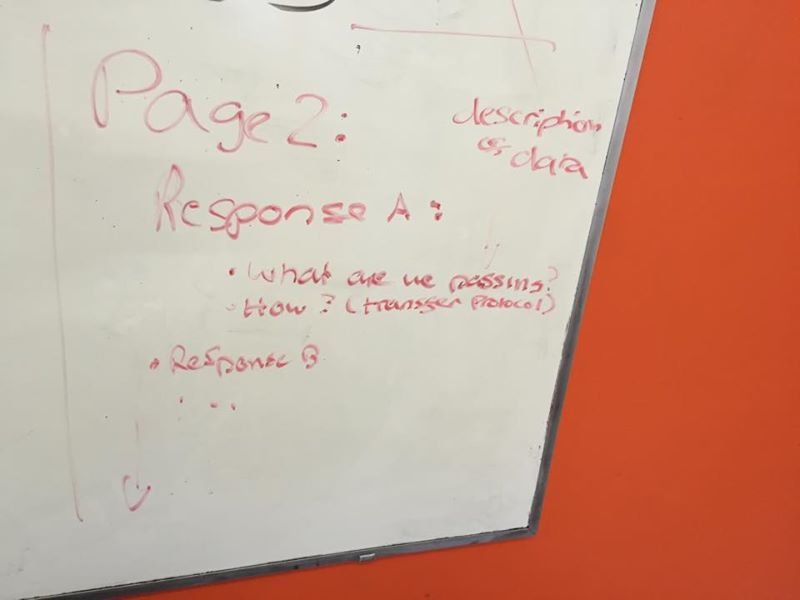 Page 2:
description
of data
Response A:
• What are we passing?
• How? (transfer protocol)
• Response B
...